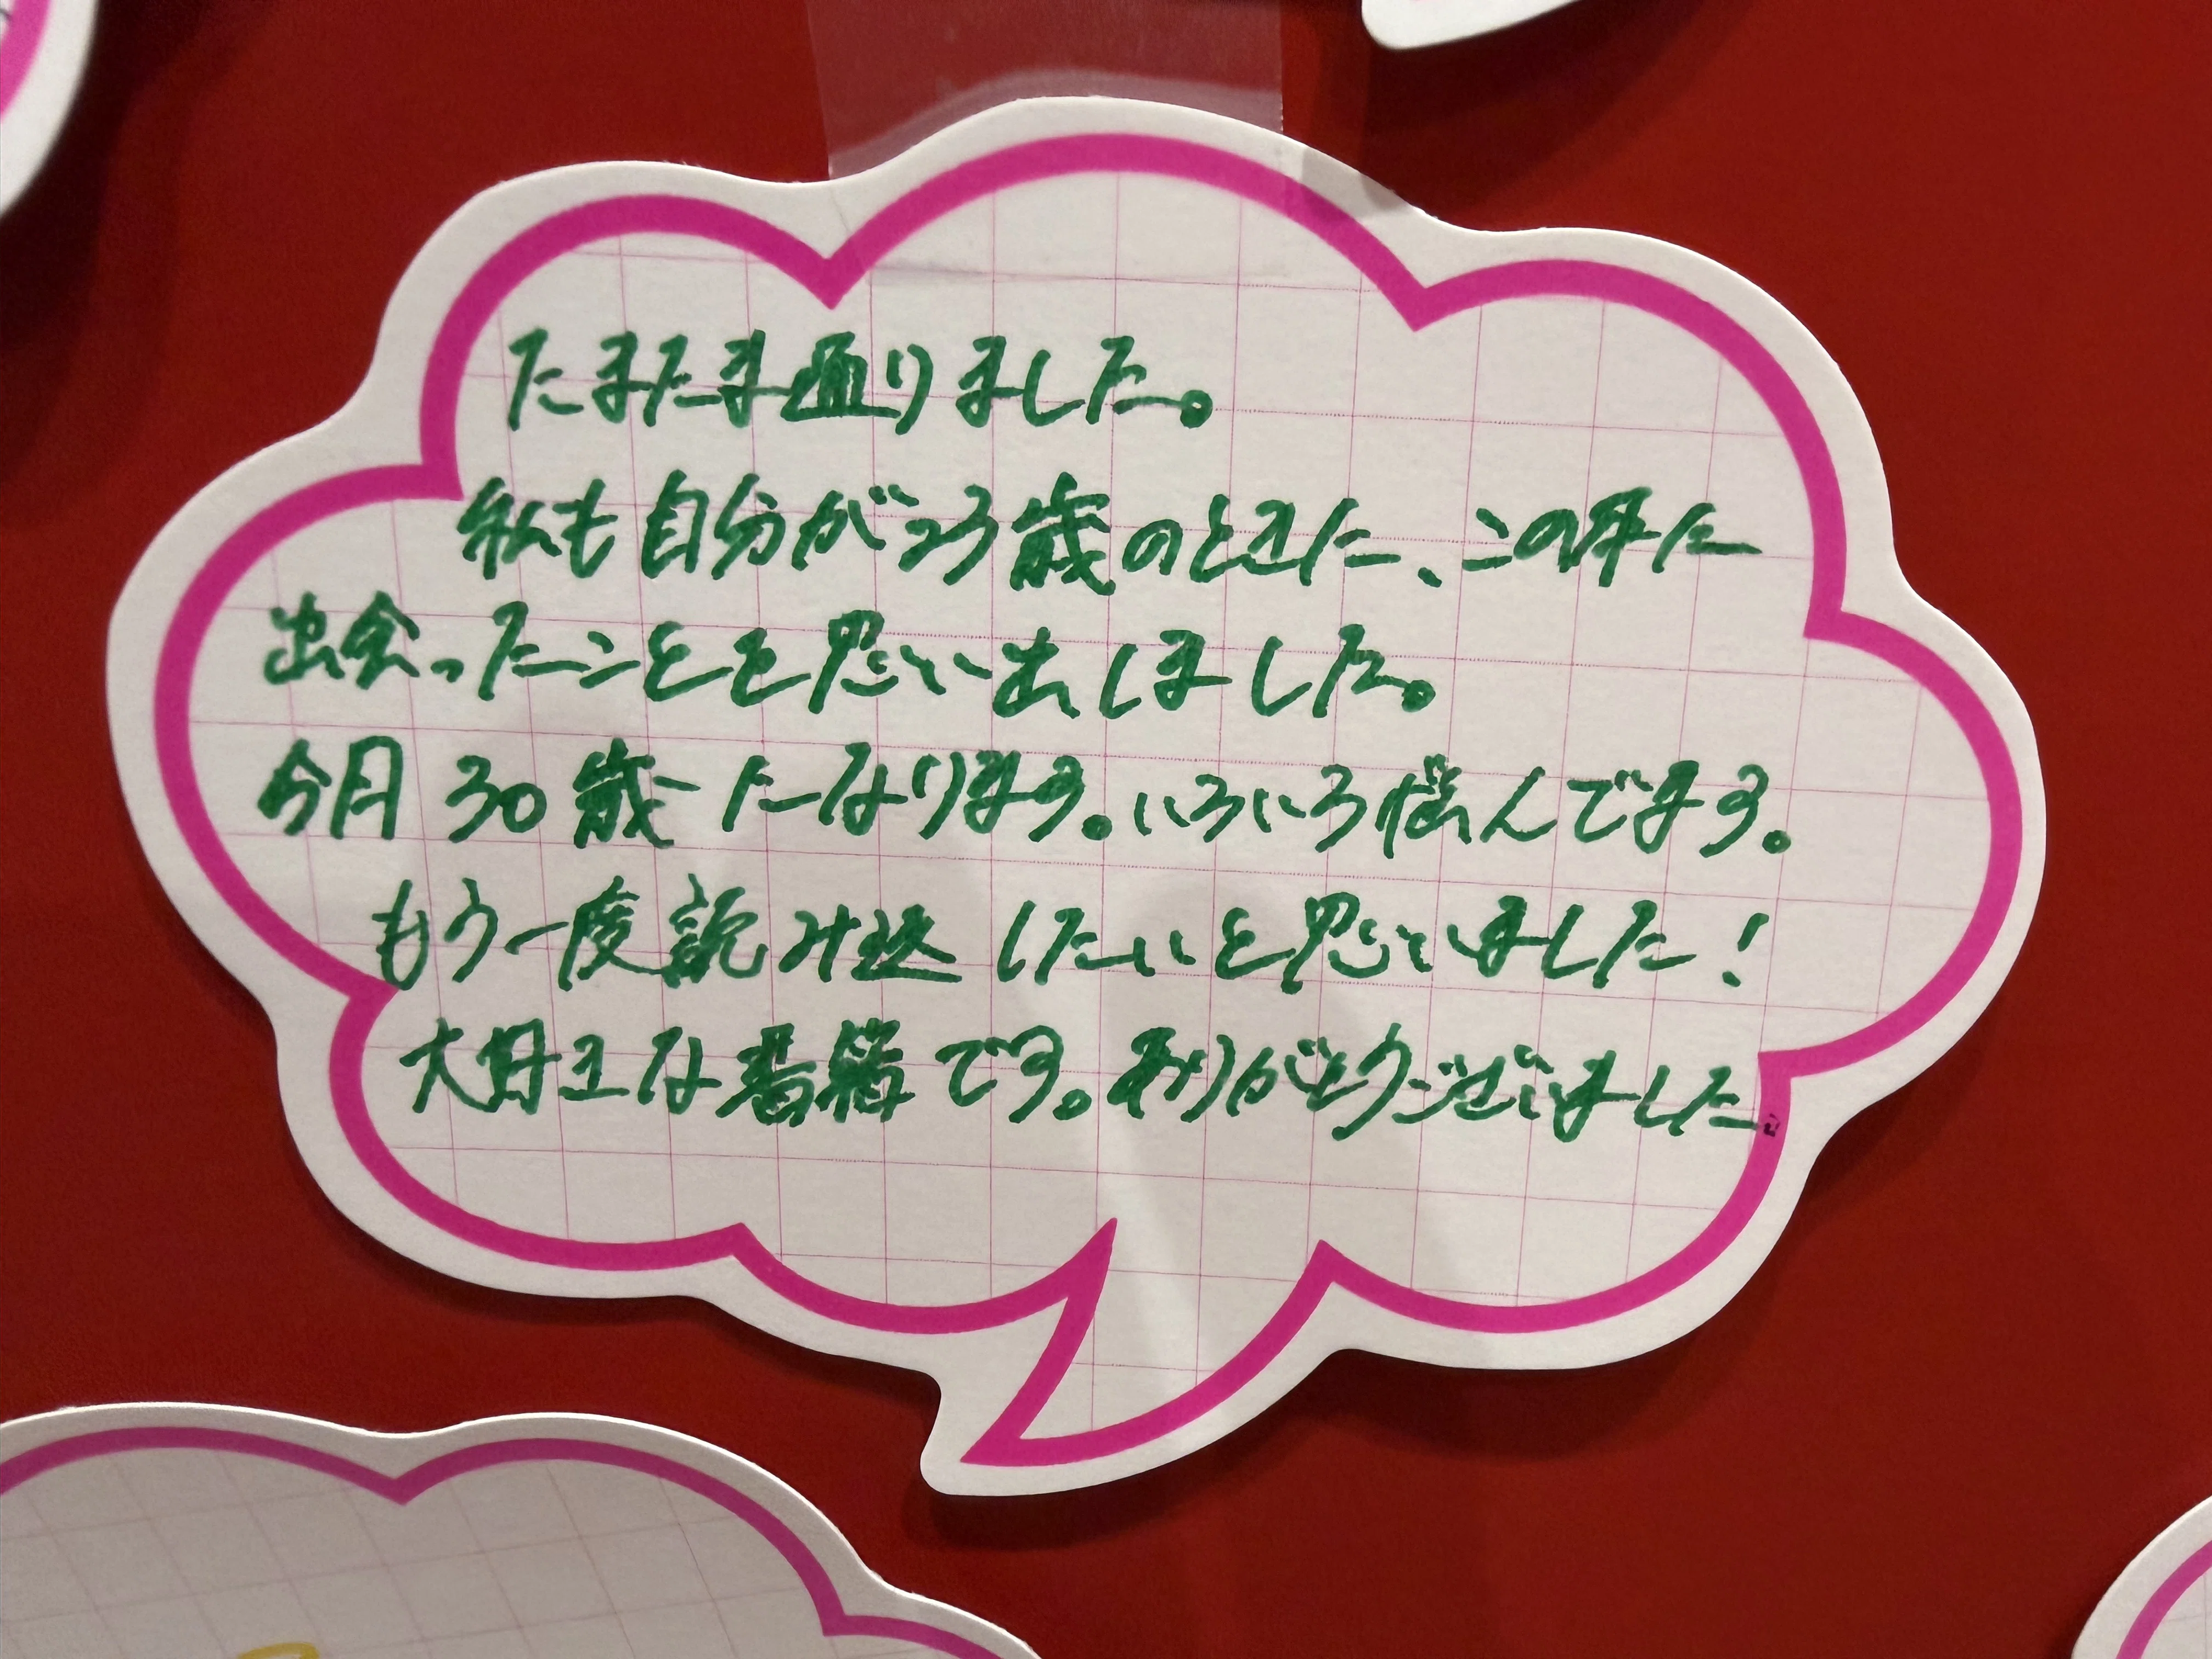 たまたま通りました。
私も自分が23歳のときに、この本に
出会ったことを思い出しました。
今月30歳になります。いろいろ悩んでます。
もう一度読み込したいと思いました!
大丈夫な番編です。ありがとうございました。